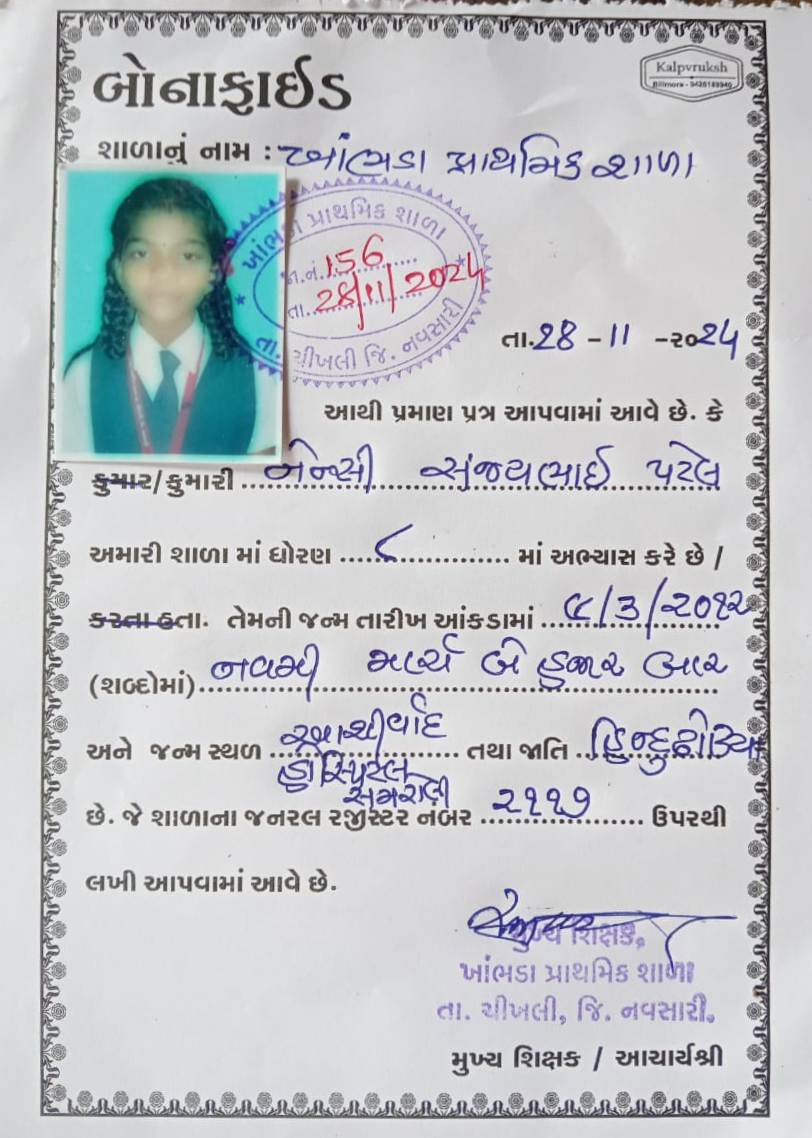 બોનાફાઈડ
Kalpvruksh
Bilimora - 9426189946
શાળાનું નામ : ખાંભડા પ્રાથમિક શાળા
ખાંભડા પ્રાથમિક શાળા
જા.નં. 156
તા. 28/11/2024
તા. ચીખલી જિ. નવસારી
તા. 28 - 11 - ૨૦24
આથી પ્રમાણ પત્ર આપવામાં આવે છે. કે
કુમાર/કુમારી સંજયભાઈ પટેલ
અમારી શાળા માં ધોરણ ૮ માં અભ્યાસ કરે છે /
કરતા હતા. તેમની જન્મ તારીખ આંકડામાં ૯/3/૨૦૧૨
(શબ્દોમાં) નવમી માર્ચ બે હજાર બાર
અને જન્મ સ્થળ આશીર્વાદ તથા જાતિ હિન્દુ ઢોડિયા
હોસ્પિટલ
સમરોલી
છે. જે શાળાના જનરલ રજીસ્ટર નંબર ૨૧૧૭ ઉપરથી
લખી આપવામાં આવે છે.
મુખ્ય શિક્ષક,
ખાંભડા પ્રાથમિક શાળા
તા. ચીખલી, જિ. નવસારી.
મુખ્ય શિક્ષક / આચાર્યશ્રી